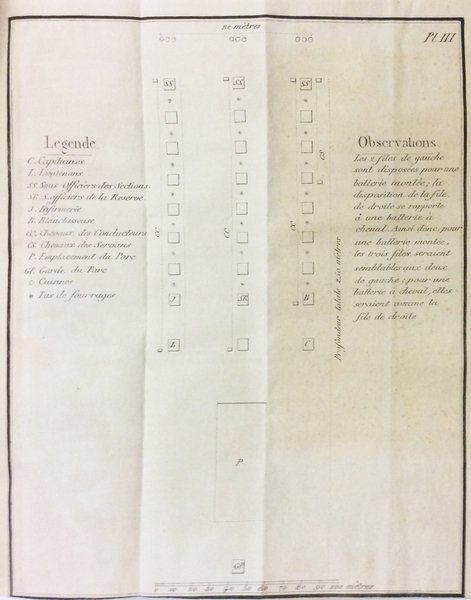 80 mètres
Pl. III
SS SS SS
Légende
C. Capitaines
L. Lieutenans
SS. Sous Officiers des Sections
SR. S. officiers de la Reserve
I. Infirmerie
B. Blanchisseuse
CC. Chevaux des Conducteurs
CS. Chevaux des Servans
P. Emplacement du Parc
GP. Garde du Parc
○ Cuisines
* Tas de fourrages
Observations
Les 2 files de gauche
sont disposées pour une
batterie montée; la
disposition de la file
de droite se rapporte
à une batterie à
cheval. Ainsi donc, pour
une batterie montée,
les trois files seraient
semblables aux deux
de gauche; pour une
batterie à cheval, elles
seraient comme la
file de droite
CS
CC CC CC
Profondeur totale 250 mètres
I SR B
L C
P
GP
0 10 20 30 40 50 60 70 80 90 100 mètres